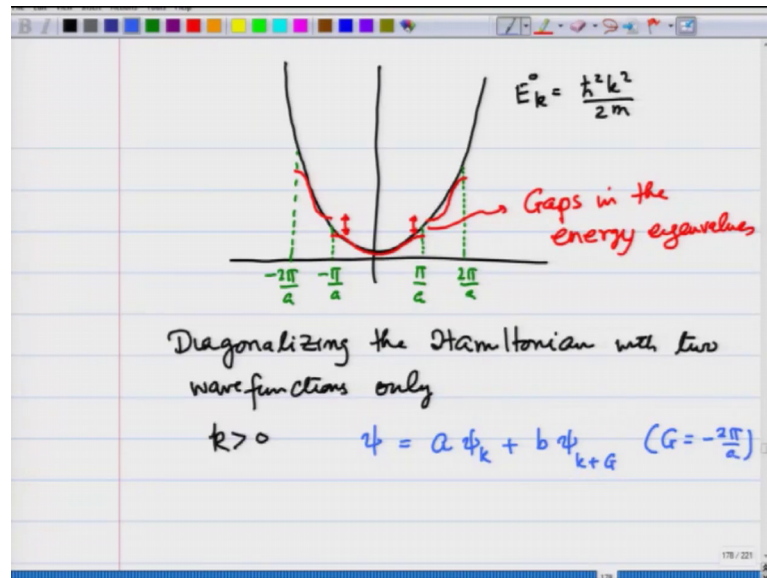 E°k = ħ²k² / 2m
Gaps in the
energy eigenvalues
-2π/a -π/a π/a 2π/a
Diagonalizing the Hamiltonian with two
wavefunctions only
k>0 ψ = a ψk + b ψk+G (G = -2π/a)
178 / 221
178